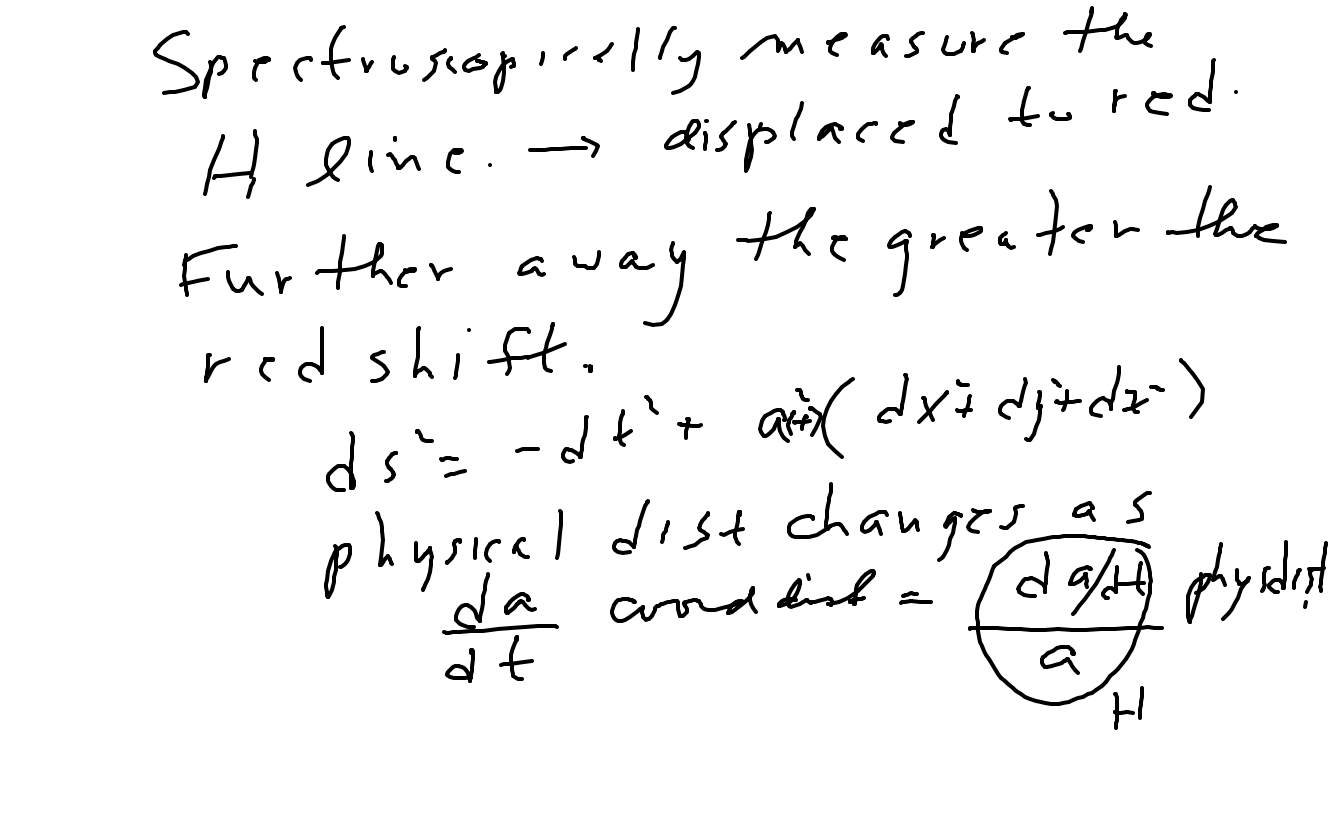 Spectroscopically measure the
H line. → displaced to red.
Further away the greater the
red shift.
ds² = -dt² + a²(t)(dx²+dy²+dz²)
physical dist changes as
da/dt coord dist = (da/dt)/a physdist
H